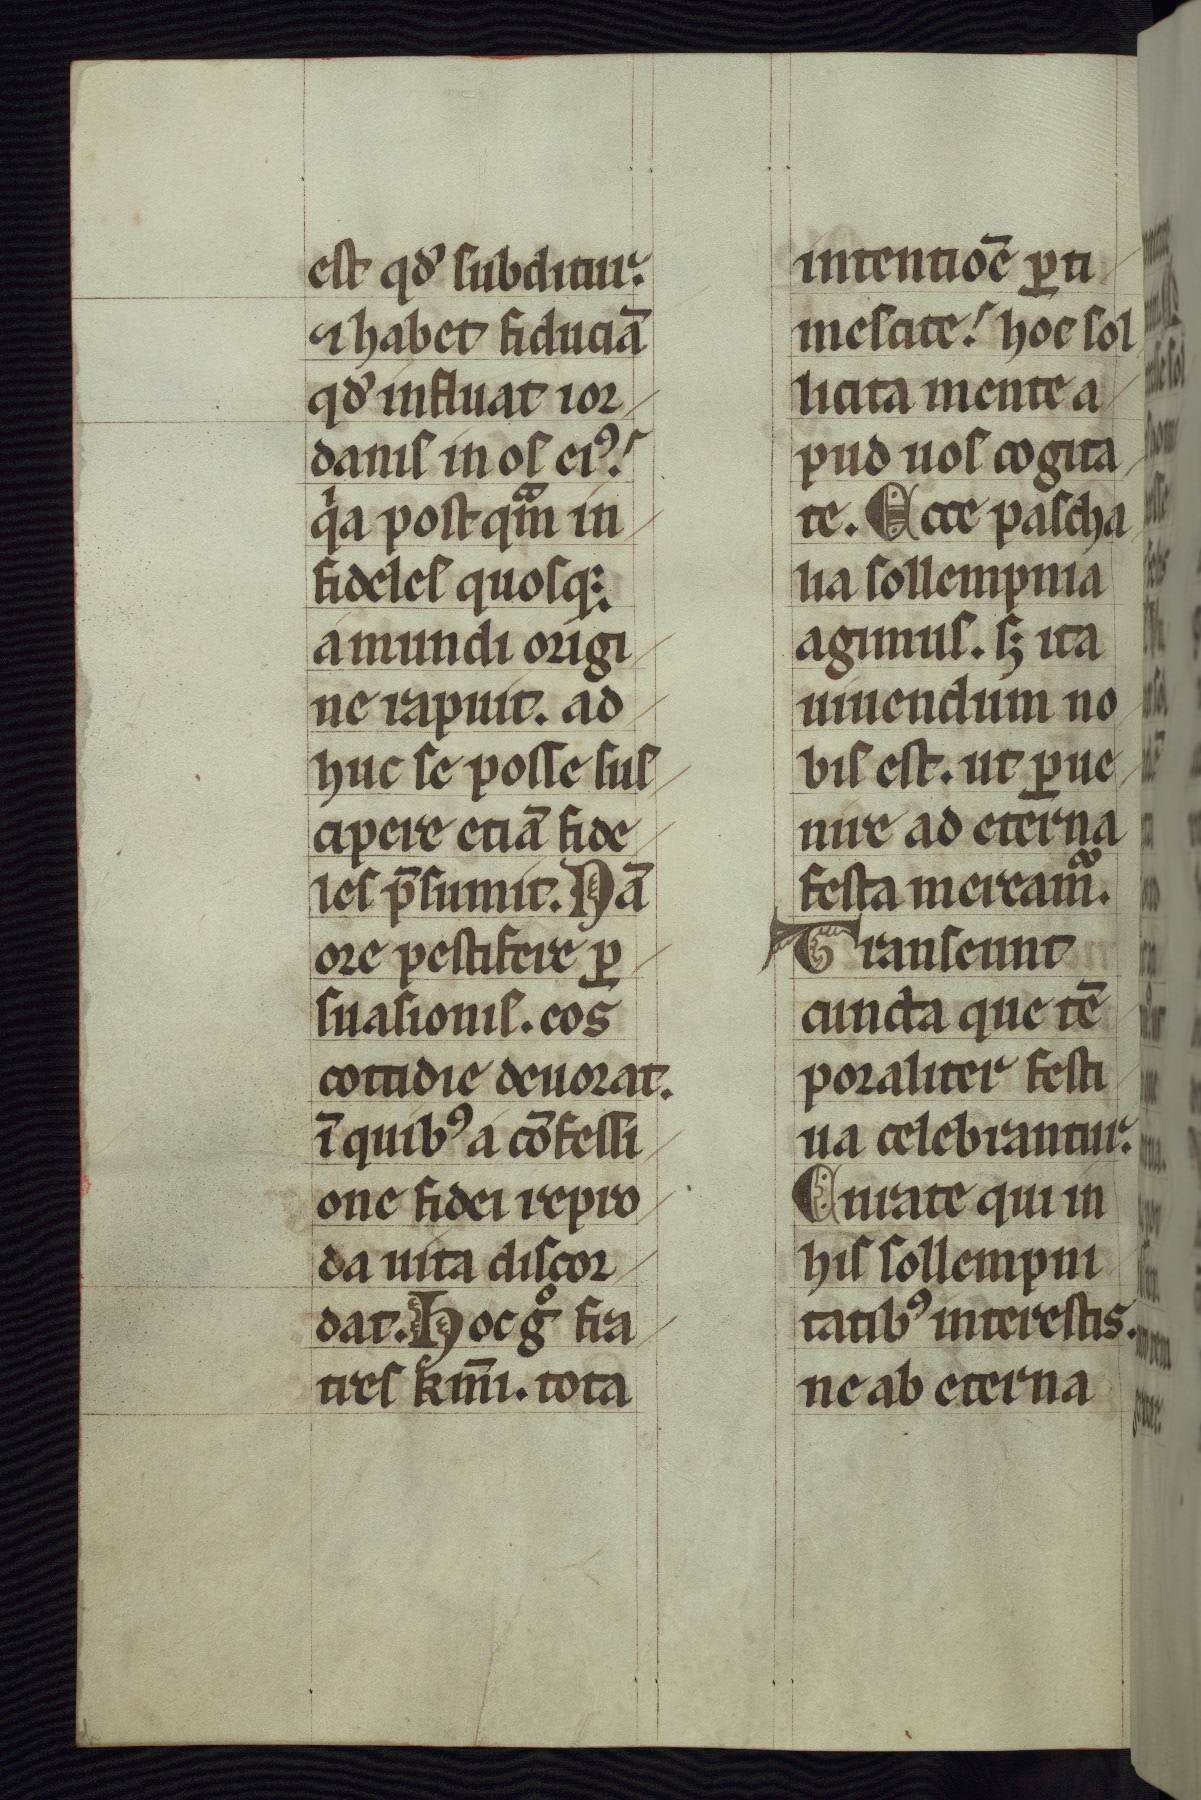 est qđ subditur.
⁊ habet fiduciā
qđ influat ior
danis in os eiꝰ.
qͥa postqͣm in
fideles quosq;
a mundi origi
ne rapuit. ad
huc se posse sus
cipere etiā fide
les p̄sumit. Nā
ore pestifere ꝑ
suasionis. eos
cottidie deuorat.
ī quibꝰ a cōfessi
one fidei repro
ba uita discor
dat. Hoc gͦ fra
tres km̄i. tota
intentiōe ꝑti
mescite! hoc sol
licita mente a
pud uos cogita
te. Ecce pascha
lia sollempnia
agimus. sꝫ ita
uiuendum no
bis est. ut ꝑue
nire ad eterna
festa mereamᷓ.
Transeunt
cuncta que tē
poraliter festi
ua celebrantur.
Curate qui in
his sollempni
tatibꝰ interestis.
ne ab eterna